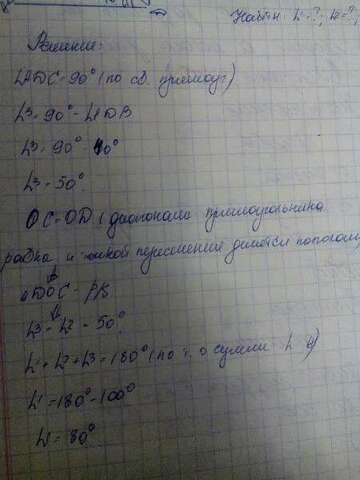 Найти: ∠1-?; ∠2-?
Решение:
∠ADC=90° (по св. прямоуг.)
∠3=90°-∠ADB
∠3=90°-40°
∠3=50°
OC=OD (диагонали прямоугольника
равны и точкой пересечения делятся пополам)
△DOC - р/б
∠3=∠2=50°
∠1+∠2+∠3=180° (по т. о сумме ∠ в)
∠1=180°-100°
∠1=80°